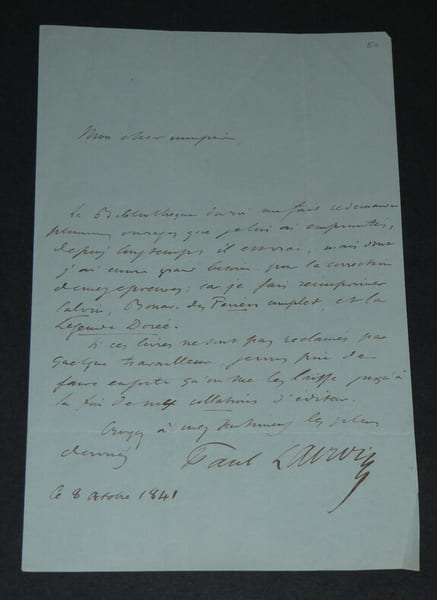 50
Mon cher monsieur,
La Bibliothèque du roi me fait redemander
plusieurs ouvrages que je lui ai empruntés,
depuis longtemps il est vrai, mais dont
j'ai encore grand besoin pour la correction
de mes épreuves; car je fais réimprimer
Calvin, Bonav. des Périers complet, et la
Légende Dorée.
Si ces livres ne sont pas réclamés par
quelque travailleur, je vous prie de
faire en sorte qu'on me les laisse jusqu'à
la fin de mes collations d'éditeur.
Croyez à mes sentiments les plus
dévoués
Paul Lacroix
Ce 8 octobre 1841